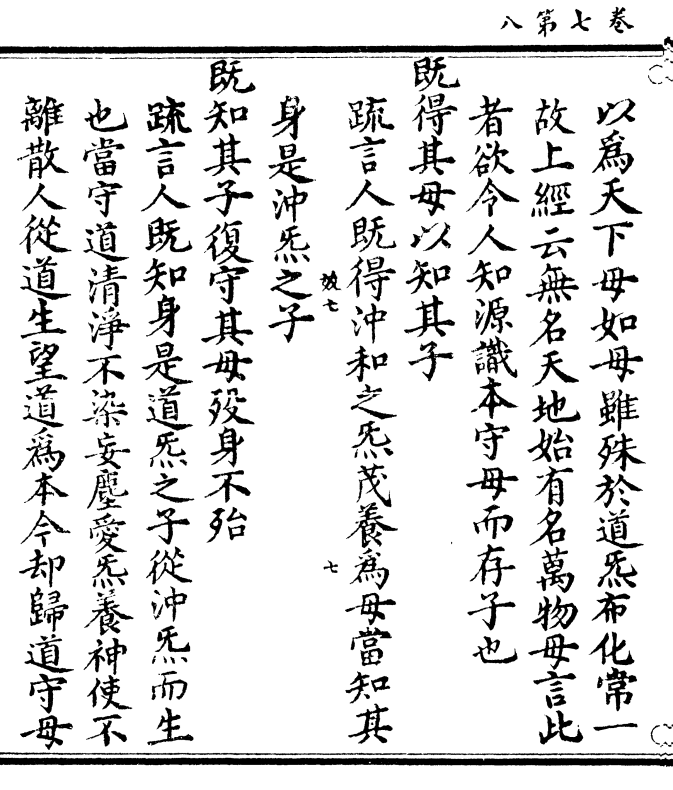 卷七第八
以爲天下母如母雖殊於道炁布化常一
故上經云無名天地始有名萬物母言此
者欲令人知源識本守母而存子也
既得其母以知其子
疏言人既得沖和之炁茂養爲母當知其
身是沖炁之子
既知其子復守其母歿身不殆
疏言人既知身是道炁之子從沖炁而生
也當守道清淨不染妄塵愛炁養神使不
離散人從道生望道爲本今却歸道守母
七
七